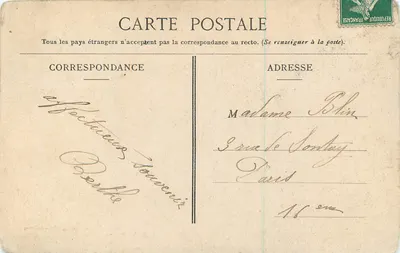 CARTE POSTALE
Tous les pays étrangers n'acceptent pas la correspondance au recto. (Se renseigner à la poste).
CORRESPONDANCE
affectueux souvenir
Berthe
ADRESSE
Madame Blin
3 rue de Sontay
Paris
16eme